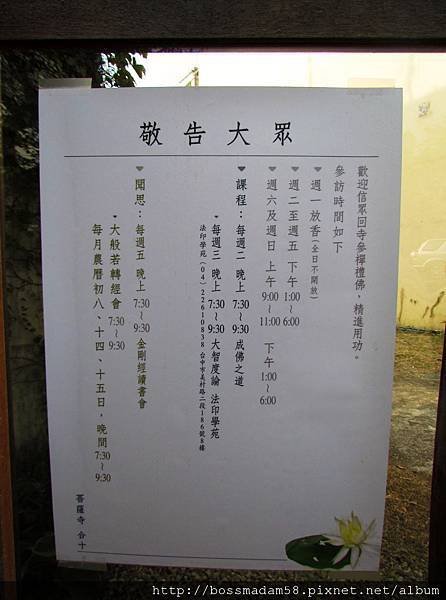 敬告大眾
歡迎信眾回寺參禪禮佛，精進用功。
參訪時間如下
週一放香(全日不開放)
週二至週五 下午 1:00～6:00
週六及週日 上午 9:00～11:00 下午 1:00～6:00
課程：每週二 晚上 7:30～9:30 成佛之道
每週三 晚上 7:30～9:30 大智度論 法印學苑
法印學苑(04)22610838 台中市美村路二段186號8樓
聞思：每週五 晚上 7:30～9:30 金剛經讀書會
大般若轉經會 7:30～9:30
每月農曆初八、十四、十五日，晚間 7:30～9:30
菩薩寺 合十
http://bossmadam58.pixnet.net/album